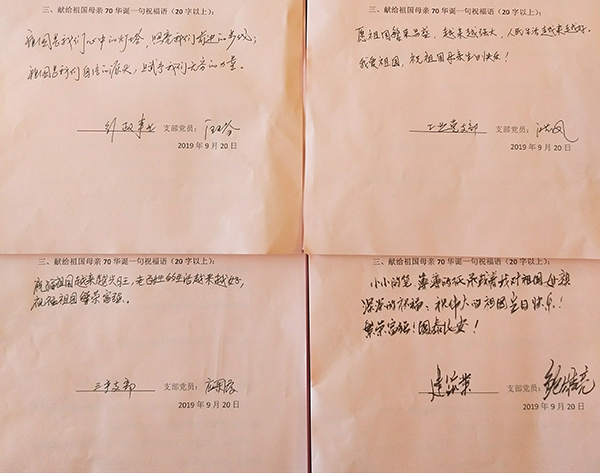 三、献给祖国母亲 70 华诞一句祝福语（20 字以上）：
祖国是我们心中的灯塔，照亮我们前进的步伐；
祖国是我们自信的源头，赋予我们无穷的力量。
行政事业 支部党员：
2019 年 9 月 20 日
三、献给祖国母亲 70 华诞一句祝福语（20 字以上）：
愿祖国繁荣昌盛，越来越强大，人民生活越来越好。
我爱祖国，祝祖国母亲生日快乐！
工业党支部 支部党员：
2019 年 9 月 20 日
三、献给祖国母亲 70 华诞一句祝福语（20 字以上）：
祖国越来越 老百姓的生活越来越好，
祝福祖国繁荣富强。
支部 支部党员：
2019 年 9 月 20 日
三、献给祖国母亲 70 华诞一句祝福语（20 字以上）：
小小的笔，薄薄的纸，承载着我对祖国母亲
深深的祝福：祝伟大的祖国生日快乐！
繁荣富强！国泰民安！
支部党员：
2019 年 9 月 20 日